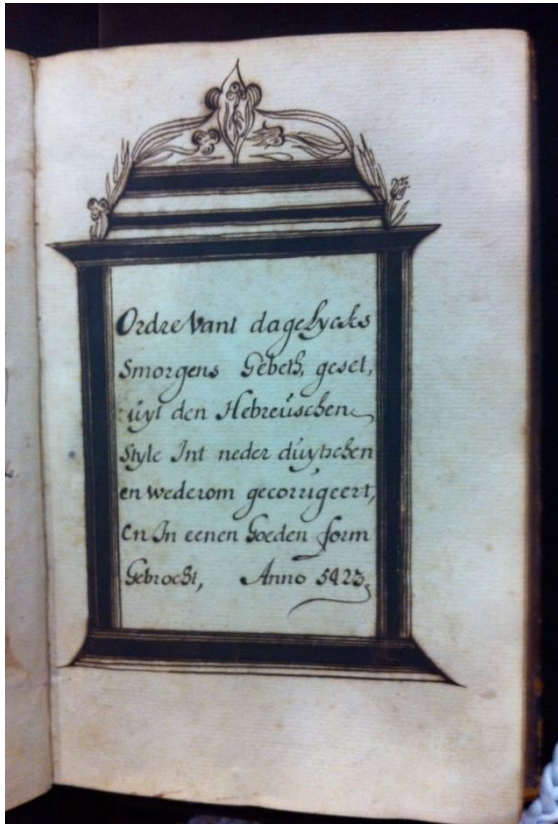 Ordre Vant dagelycks
Smorgens Gebeth, geset,
uyt den Hebreüschen
Style Int neder düytschen
en wederom gecorrigeert,
en In eenen Goeden form
Gebrocht, Anno 5423,